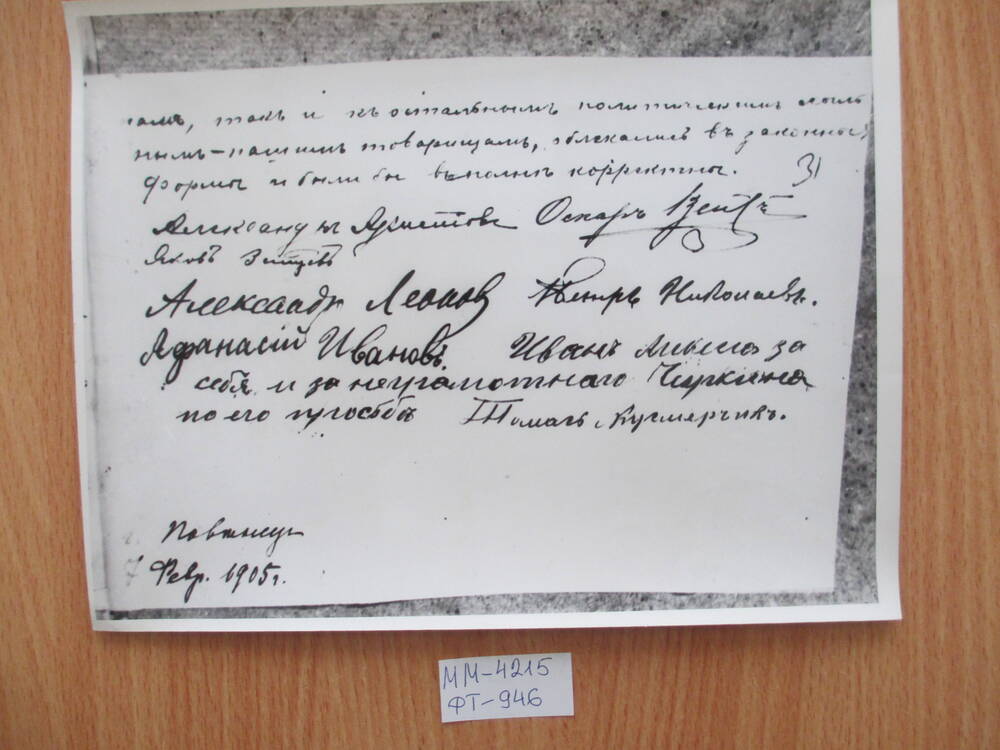 намъ, такъ и къ остальнымъ политическимъ ссыль
нымъ-нашимъ товарищамъ, облекались въ законныя
формы и были бы вполнѣ корректны.
31
Александръ Оскаръ
Яковъ Зайцевъ
Александръ Леонов Петръ Николаевъ.
Афанасій Ивановъ. Иванъ за
себя и за неграмотнаго Чиркина
по его просьбѣ Томашъ Кусмерчикъ.
Повѣнецъ
7 Февр. 1905 г.
ММ-4215
ФТ-946